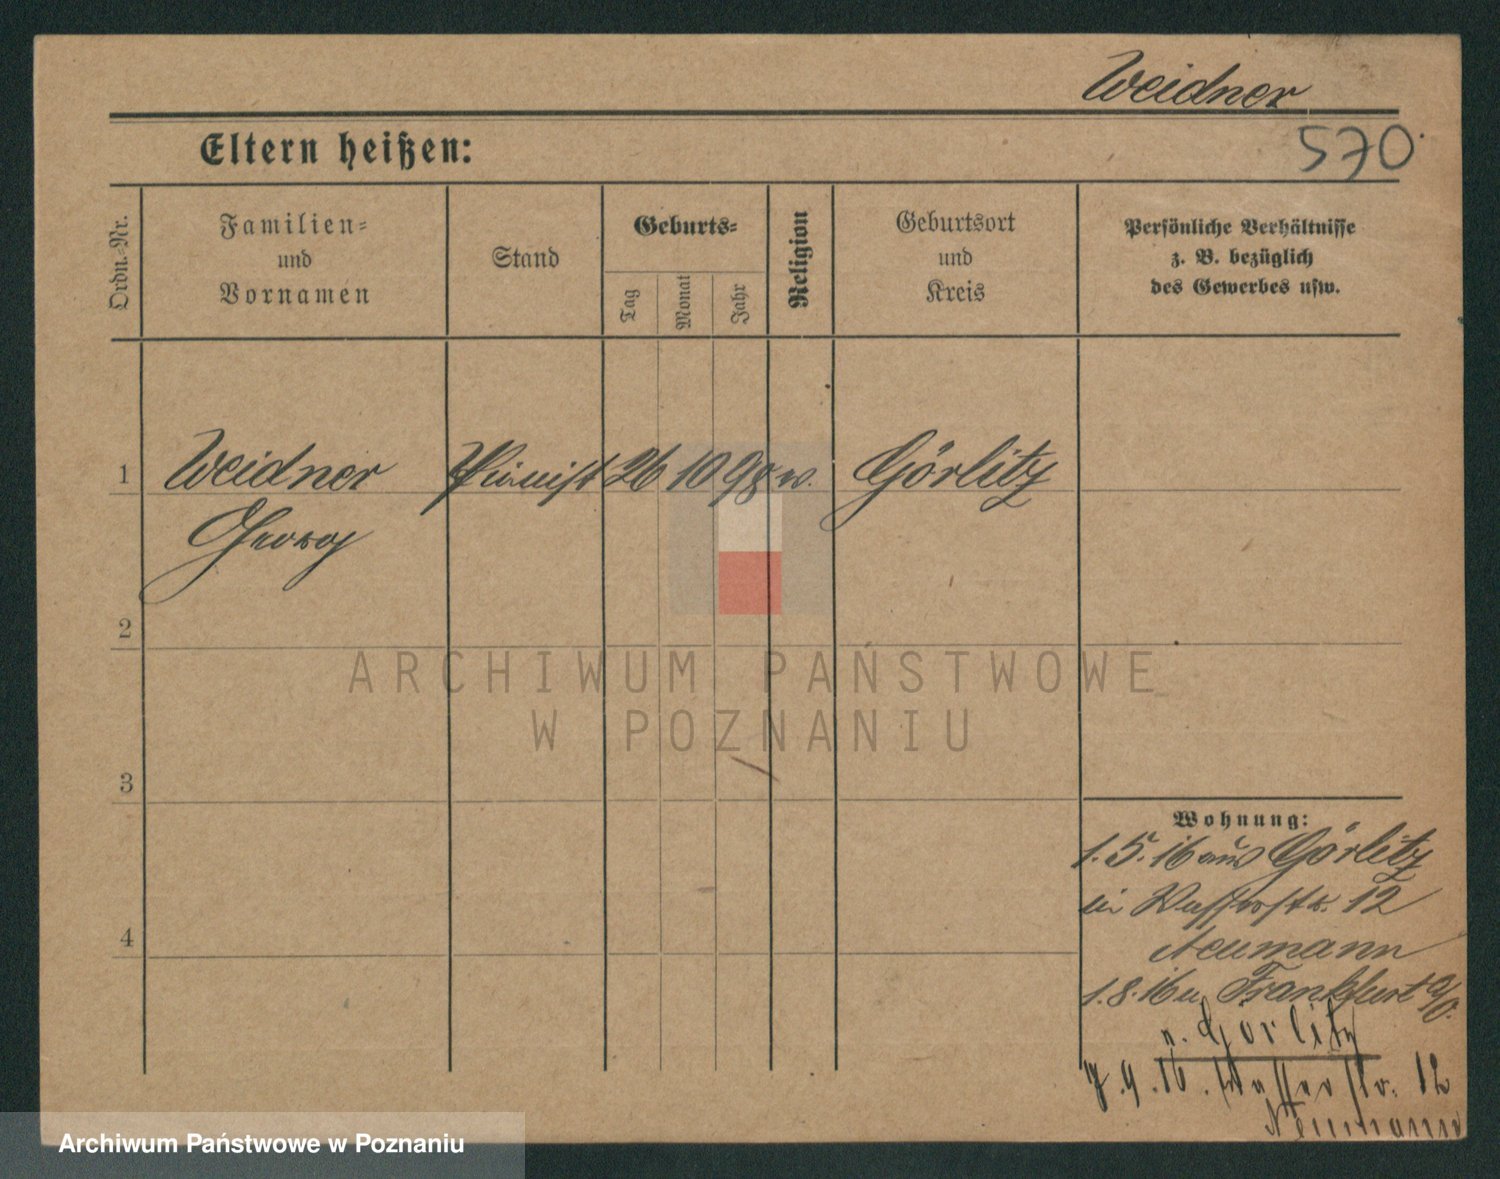 Weidner
570.
Eltern heißen:
Ordn.-Nr.
Familien-
und
Vornamen
Stand
Geburts-
Tag
Monat
Jahr
Religion
Geburtsort
und
Kreis
Persönliche Verhältnisse
z. B. bezüglich
des Gewerbes usw.
1 Weidner Pianist 26 10 98 w. Görlitz
Georg
2
3
4
ARCHIWUM PAŃSTWOWE
W POZNANIU
Wohnung:
1.5.16 aus Görlitz
in Wasserstr. 12
Neumann
1.8.16 n Frankfurt a/O.
n. Görlitz
7.9.16. Wasserstr. 12
Neumann
Archiwum Państwowe w Poznaniu